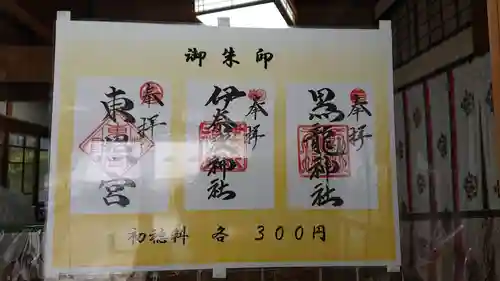 御朱印
奉拝
黒龍神社
奉拝
伊奈波神社
奉拝
東照宮
初穂料 各 300円